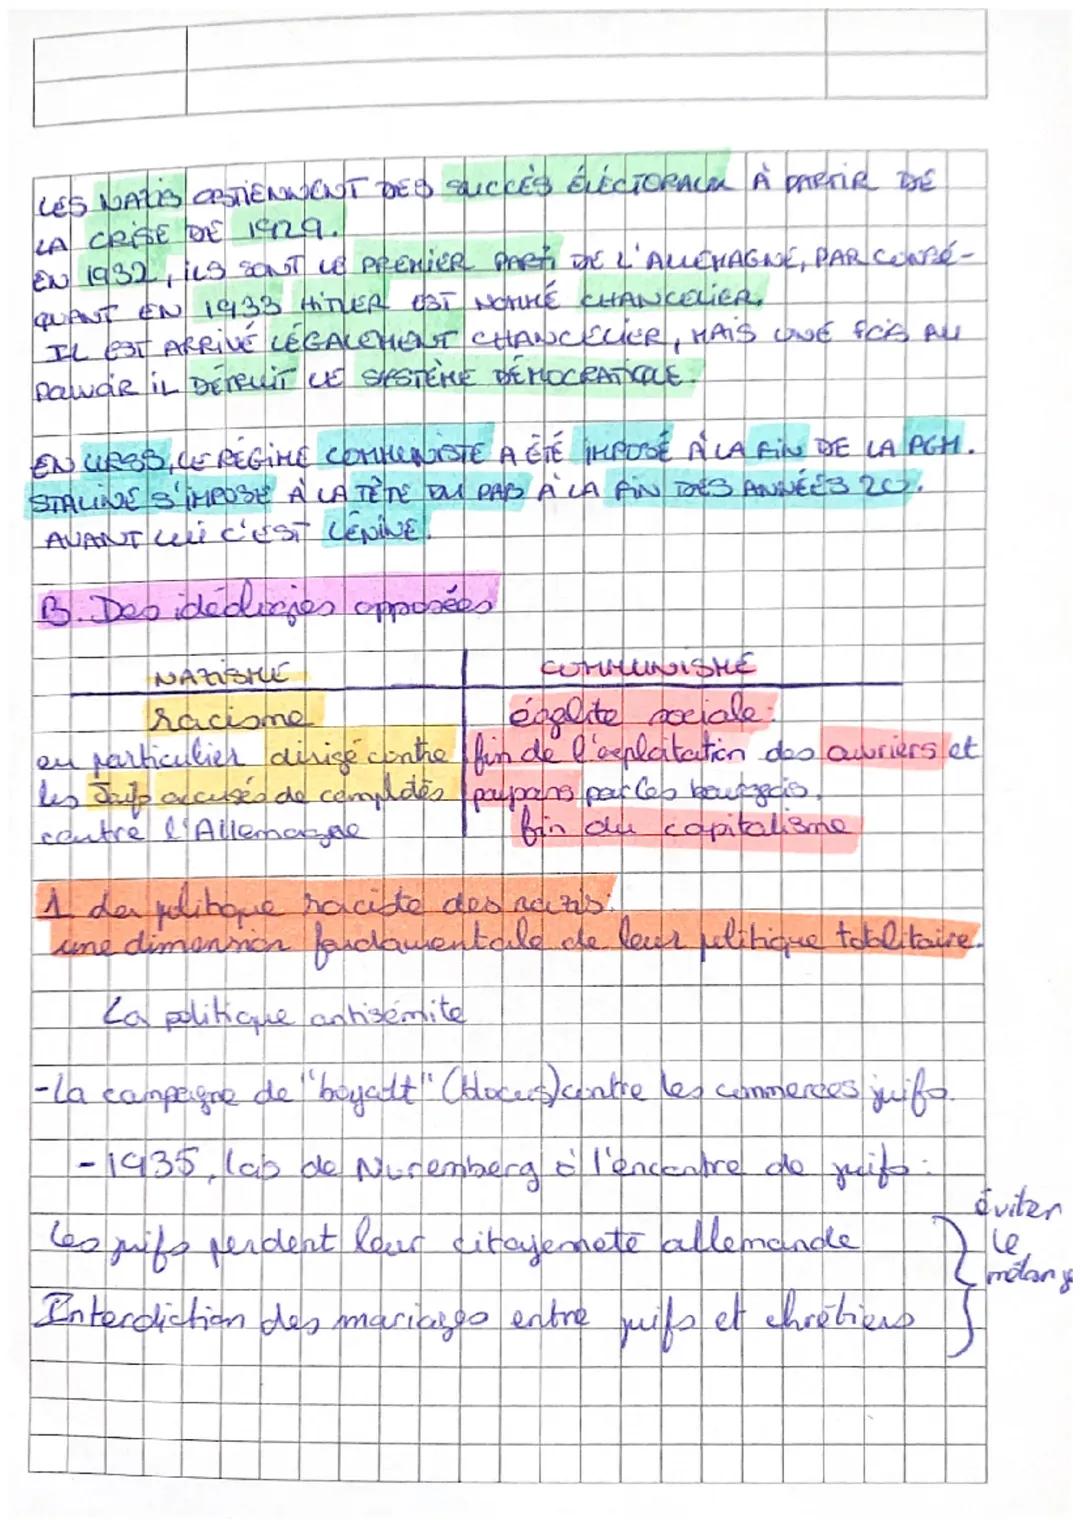 LES NAZIS OBTIENNENT DES SUCCÈS ÉLECTORAUX À PARTIR DE
LA CRISE DE 1929.
EN 1932, ILS SONT LE PREMIER PARTI DE L'ALLEMAGNE, PAR CONSÉ-
QUANT EN 1933 HITLER EST NOMMÉ CHANCELIER.
IL EST ARRIVÉ LÉGALEMENT CHANCELIER, MAIS UNE FOIS AU
POUVOIR IL DÉTRUIT LE SYSTÈME DÉMOCRATIQUE.
EN URSS, LE RÉGIME COMMUNISTE A ÉTÉ IMPOSÉ À LA FIN DE LA PGM.
STALINE S'IMPOSE À LA TÊTE DU PAS À LA FIN DES ANNÉES 20.
AVANT LUI C'EST LÉNINE.
B. Des idéologies opposées
NAZISME COMMUNISME
racisme égalite sociale:
en particulier dirigé contre fin de l'exploitation des ouvriers et
les Juifs accusés de complotés paysans par les bourgeois.
contre l'Allemagne fin du capitalisme
1. La politique raciste des nazis:
une dimension fondamentale de leur politique totalitaire.
La politique antisémite
-La campagne de "boycott" (blocus) contre les commerces juifs.
-1935, lois de Nuremberg à l'encontre de juifs:
Les juifs perdent leur citoyenneté allemande
Interdiction des mariages entre juifs et chrétiens
éviter
le
mélang